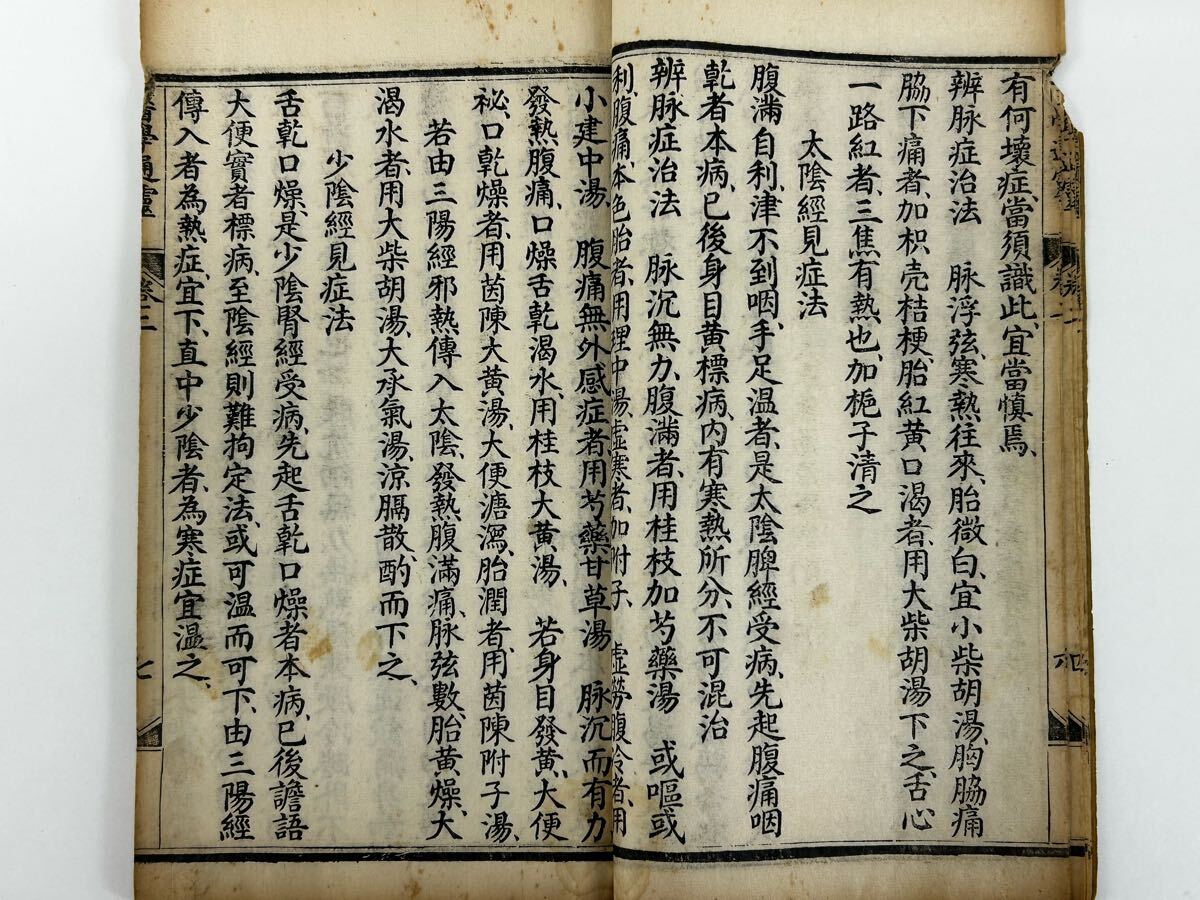 有何壞症、當須識此、宜當慎焉、
辨脉症治法　脉浮弦、寒熱往來、胎微白、宜小柴胡湯、胸脇痛
脇下痛者、加枳壳桔梗、胎紅黄口渴者、用大柴胡湯下之、舌心
一路紅者、三焦有熱也、加梔子清之
太陰經見症法
腹滿自利、津不到咽、手足温者、是太陰脾經受病、先起腹痛咽
乾者本病、已後身目黄標病、内有寒熱所分、不可混治
辨脉症治法　脉沉無力、腹滿者、用桂枝加芍藥湯　或嘔或
利、腹痛、本色胎者、用理中湯、虚寒者、加附子、虚勞腹冷者、用
小建中湯、　腹痛無外感症者、用芍藥甘草湯　脉沉而有力
發熱腹痛、口燥舌乾渴水、用桂枝大黄湯、　若身目發黄、大便
秘、口乾燥者、用茵陳大黄湯、大便溏瀉、胎潤者、用茵陳附子湯、
若由三陽經邪熱傳入太陰、發熱腹滿痛、脉弦數、胎黄燥、大
渴水者、用大柴胡湯、大承氣湯、凉膈散、酌而下之、
少陰經見症法
舌乾口燥、是少陰腎經受病、先起舌乾口燥者本病、已後譫語
大便實者標病、至陰經則難拘定法、或可温而可下、由三陽經
傳入者為熱症、宜下、直中少陰者、為寒症宜温之、
醫學通靈　卷三　七